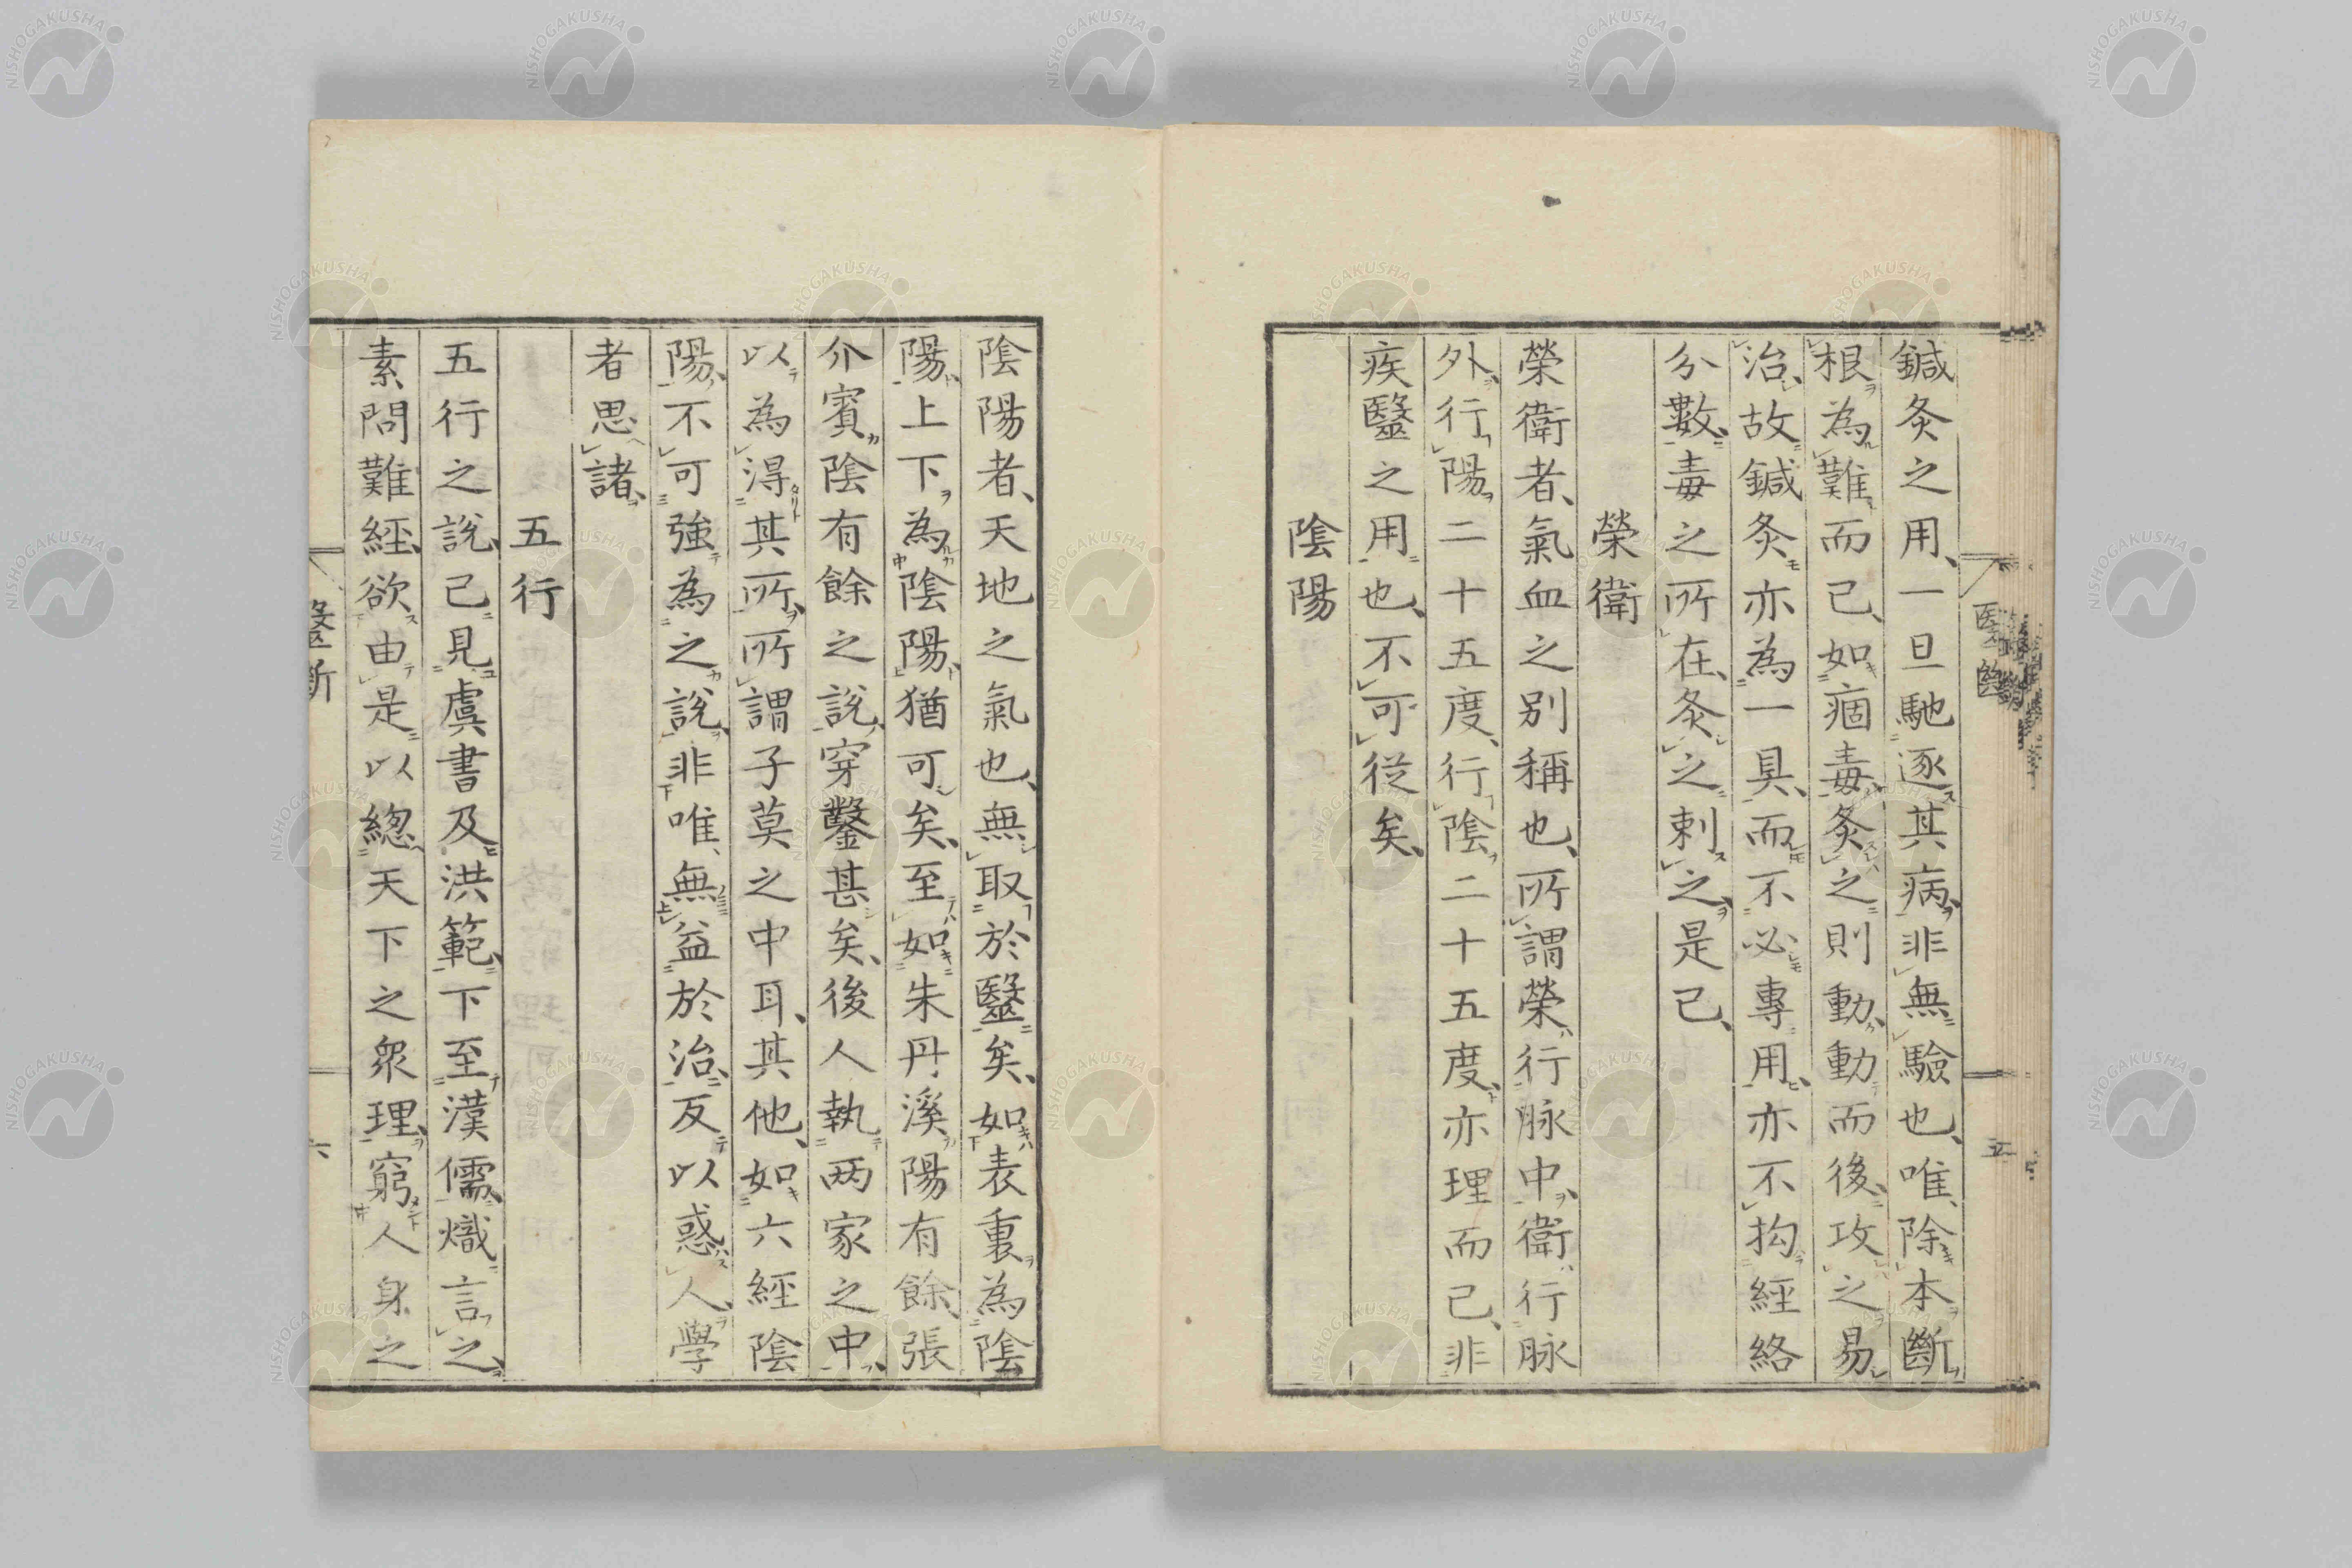 鍼灸之用、一旦馳逐其病、非無驗也、唯、除本斷
根、為難而已、如痼毒、灸之則動、動而後、攻之易
治、故鍼灸亦為一具、而不必專用、亦不拘經絡
分數、毒之所在、灸之刺之、是已、
榮衛
榮衛者、氣血之別稱也、所謂榮行脉中、衛行脉
外、行陽二十五度、行陰二十五度、亦理而已、非
疾醫之用也、不可從矣、
陰陽
醫斷
五
陰陽者、天地之氣也、無取於醫矣、如表裏為陰
陽、上下為陰陽、猶可矣、至如朱丹溪陽有餘、張
介賓陰有餘之說、穿鑿甚矣、後人執兩家之中、
以為得其所、所謂子莫之中耳、其他、如六經陰
陽、不可強為之說、非唯、無益於治、反以惑人、學
者思諸、
五行
五行之說、已見虞書及洪範、下至漢儒、熾言之、
素問難經、欲由是以總天下之衆理、窮人身之
醫斷
六
NISHOGAKUSHA